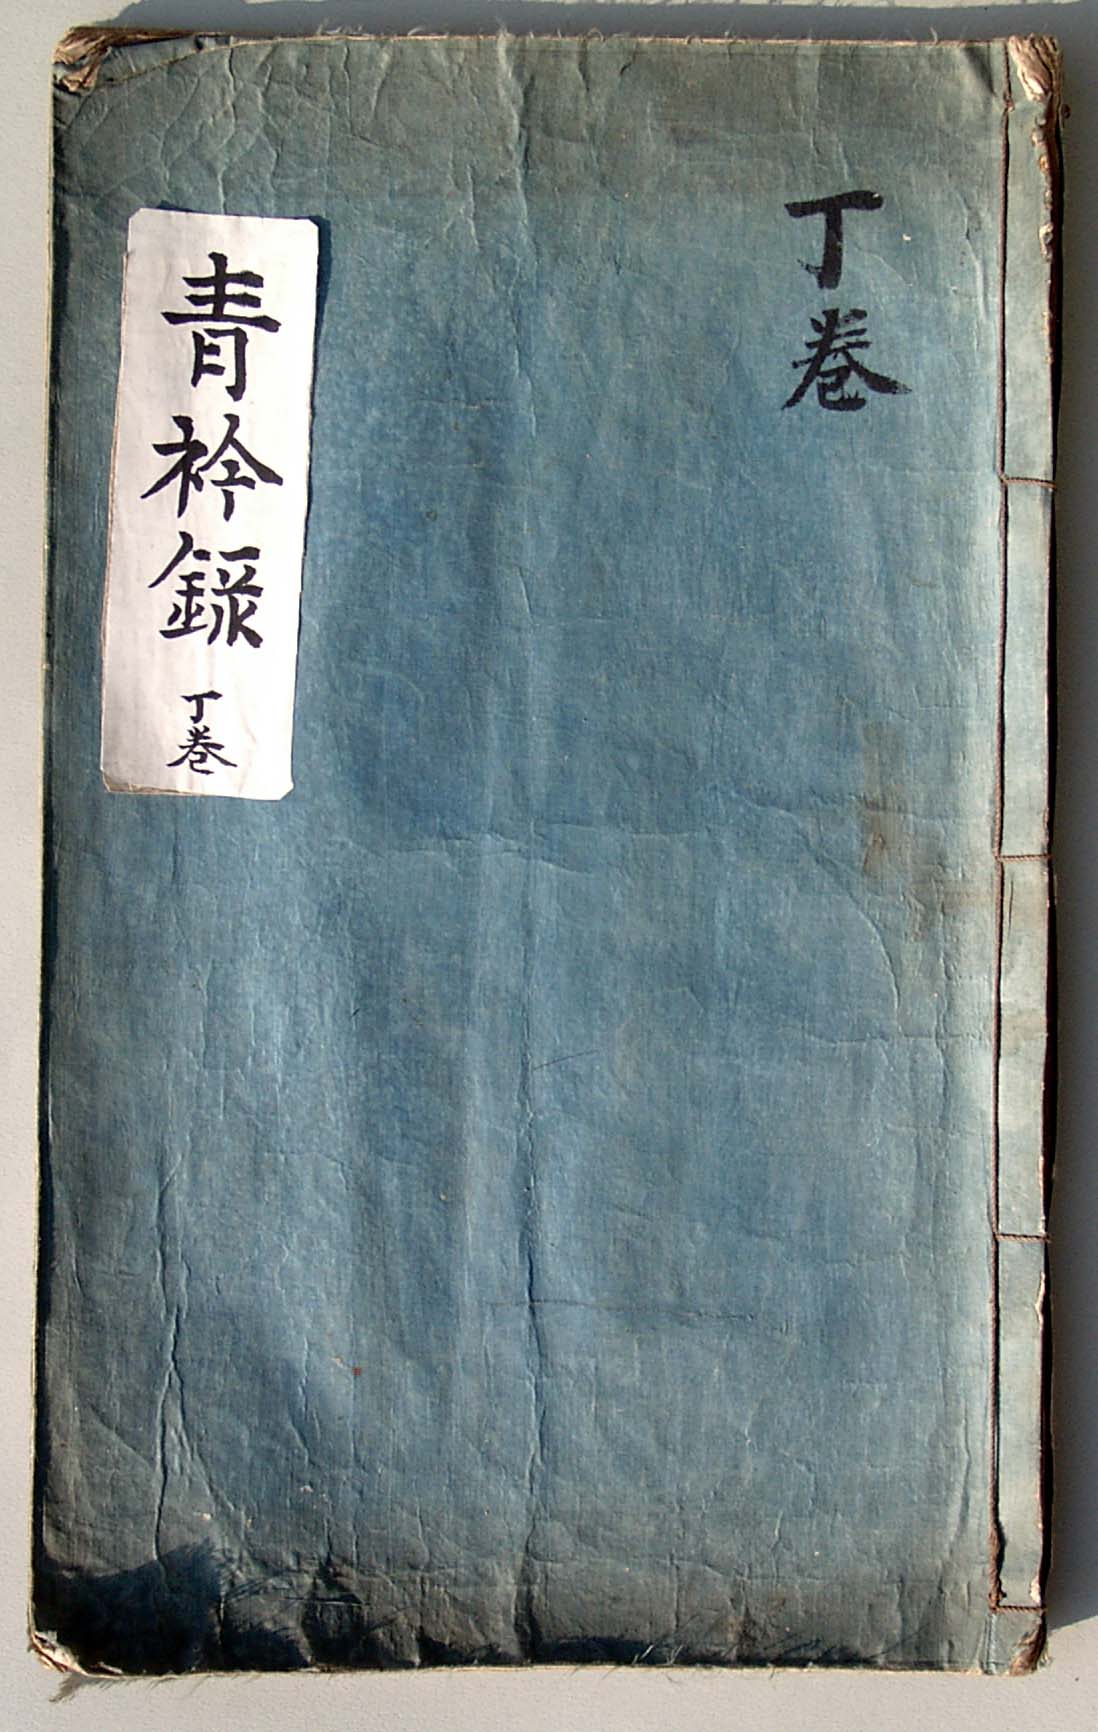 丁巻
青衿録
丁巻